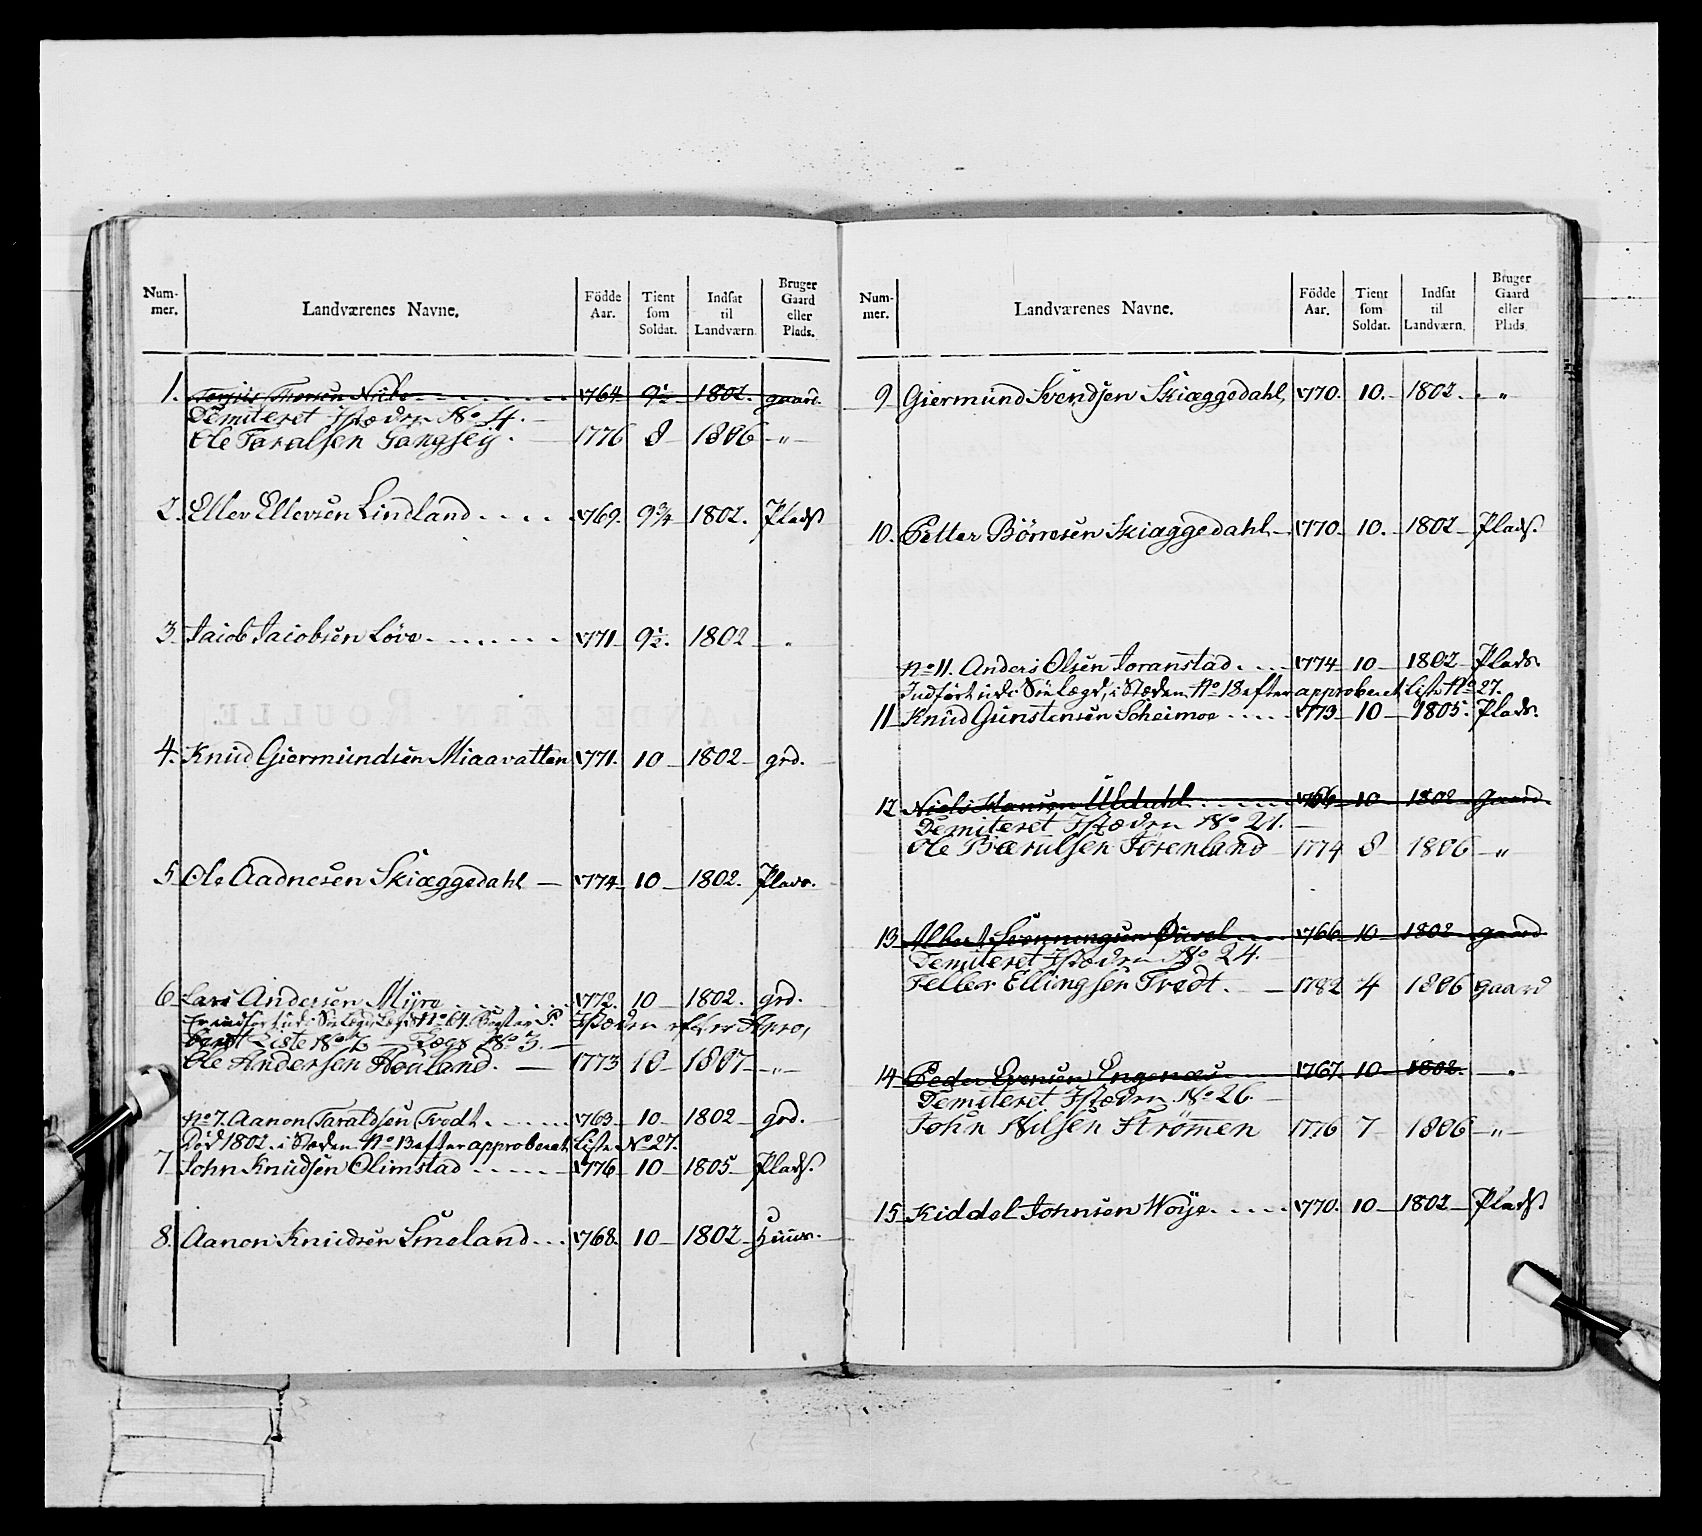 Num-
mer.
Landværenes Navne.
Födde
Aar.
Tient
som
Soldat.
Indsat
til
Landværn.
Bruger
Gaard
eller
Plads.
1. 1764 9½ 1802. gaard.
Demiteret Istæden No 4.
Ole Taralsen Gangsey. 1776 8 1806 - " -
2. Ellev Ellevsen Lindland 1769. 9¾ 1802. Plads
3. Jacob Jacobsen Löve 1771 9½. 1802 "
4. Knud Giermundsen Miaavatten 1771. 10 1802 grd.
5 Ole Aadnesen Skiæggedahl 1774 10 1802. Plads.
6 Lars Andersen Myre 1772. 10 1802. grd.
Istæden efter Appro,
beret Liste No 76 Lægd No 3.
Ole Andersen Houland. 1773 10 1807 - " -
No 7. Aanon Taraldsen Tvedt 1763 10 1802 grd.
Död 1802. i Stæden No 13 efter approberet Liste No 27.
7 John Knudsen Olimstad 1776 10 1805 Plads.
8. Aanon Knudsen Smeland 1768. 10 1802 Huus.
Num-
mer.
Landværenes Navne.
Födde
Aar.
Tient
som
Soldat.
Indsat
til
Landværn.
Bruger
Gaard
eller
Plads.
9 Giermund Svendsen Skiæggedahl 1770. 10. 1802. "
10. Petter Börresen Skiæggedahl 1770. 10. 1802 Plads.
No 11. Anders Olsen Joranstad 1774 10 1802 Plads.
Indfört udi Söe Lægd, i Stæden No 18 efter approberet Liste No 27.
11 Knud Gunstensen Scheimoe 1773 10 1805. Plads.
12 Niels Hansen Uldahl 1766 10 1802 Gaard.
Demiteret Istæden No 21.
Ole Bærulsen Förenland 1774 8 1806 - " -
13 Albert Svenningsen 1766 10 1802 gaard
Demiteret Istæden No 24.
Teller Ellingsen Tvedt. 1782 4 1806 gaard
14 Peder Evensen Engenæs 1767. 10 1802. "
Demiteret Istæden No 26.
John Nilsen Strömen 1776 7 1806 - " -
15 Kiddel Johnsen Woye 1770. 10 1802 Plads